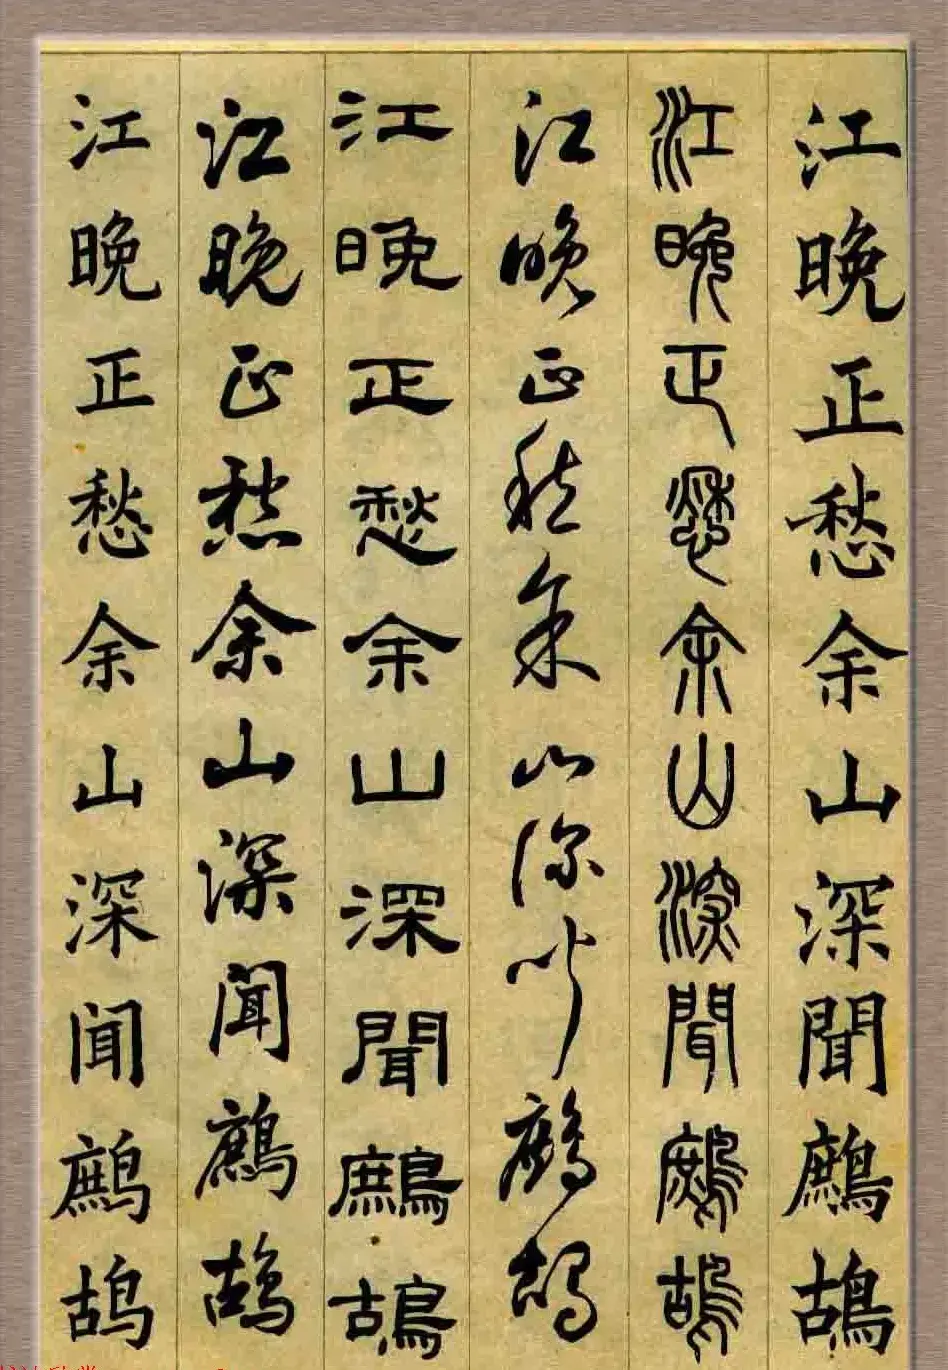 江晚正愁余山深聞鷓鴣
江晚正愁余山深聞鷓鴣
江晚正愁余山深闻鷓鴣
江晚正愁余山深聞鷓鴣
江晚正愁余山深闻鷓鴣
江晚正愁余山深闻鹧鸪